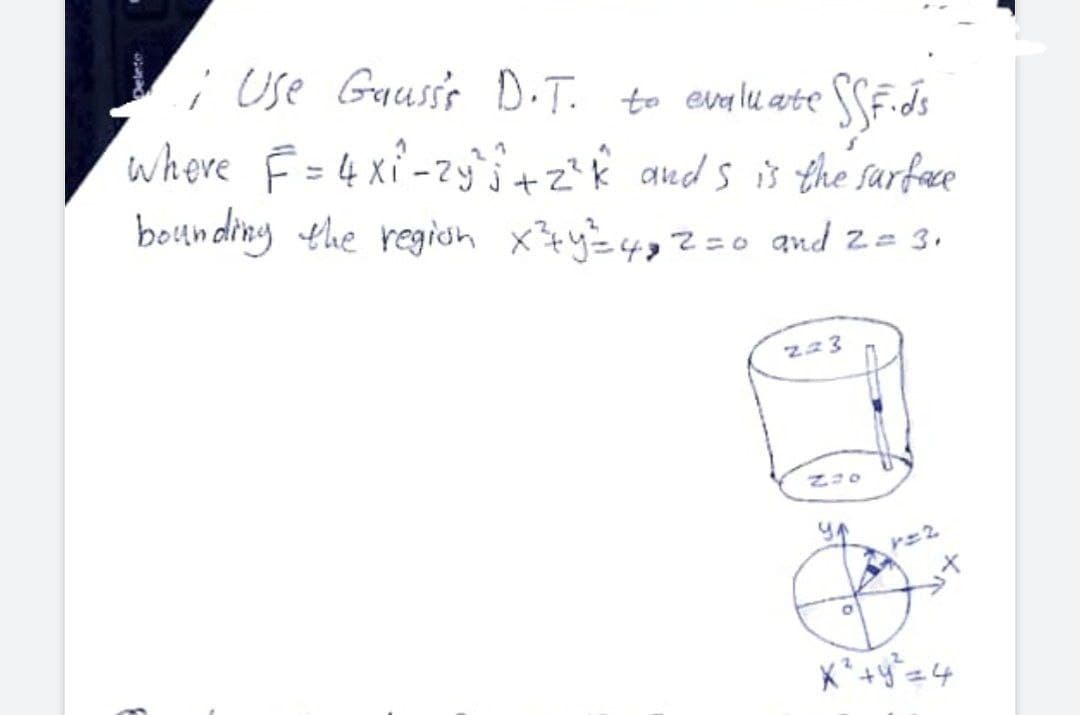 Delete
; Use Gauss's D.T. to evaluate ∫∫F̄.d̄s
s
where F̄ = 4xî - 2y²ĵ + z²k̂ and s is the surface
bounding the region x²+y²=4, z=0 and z=3.
z=3
z=0
y
r=2
x
o
x²+y²=4